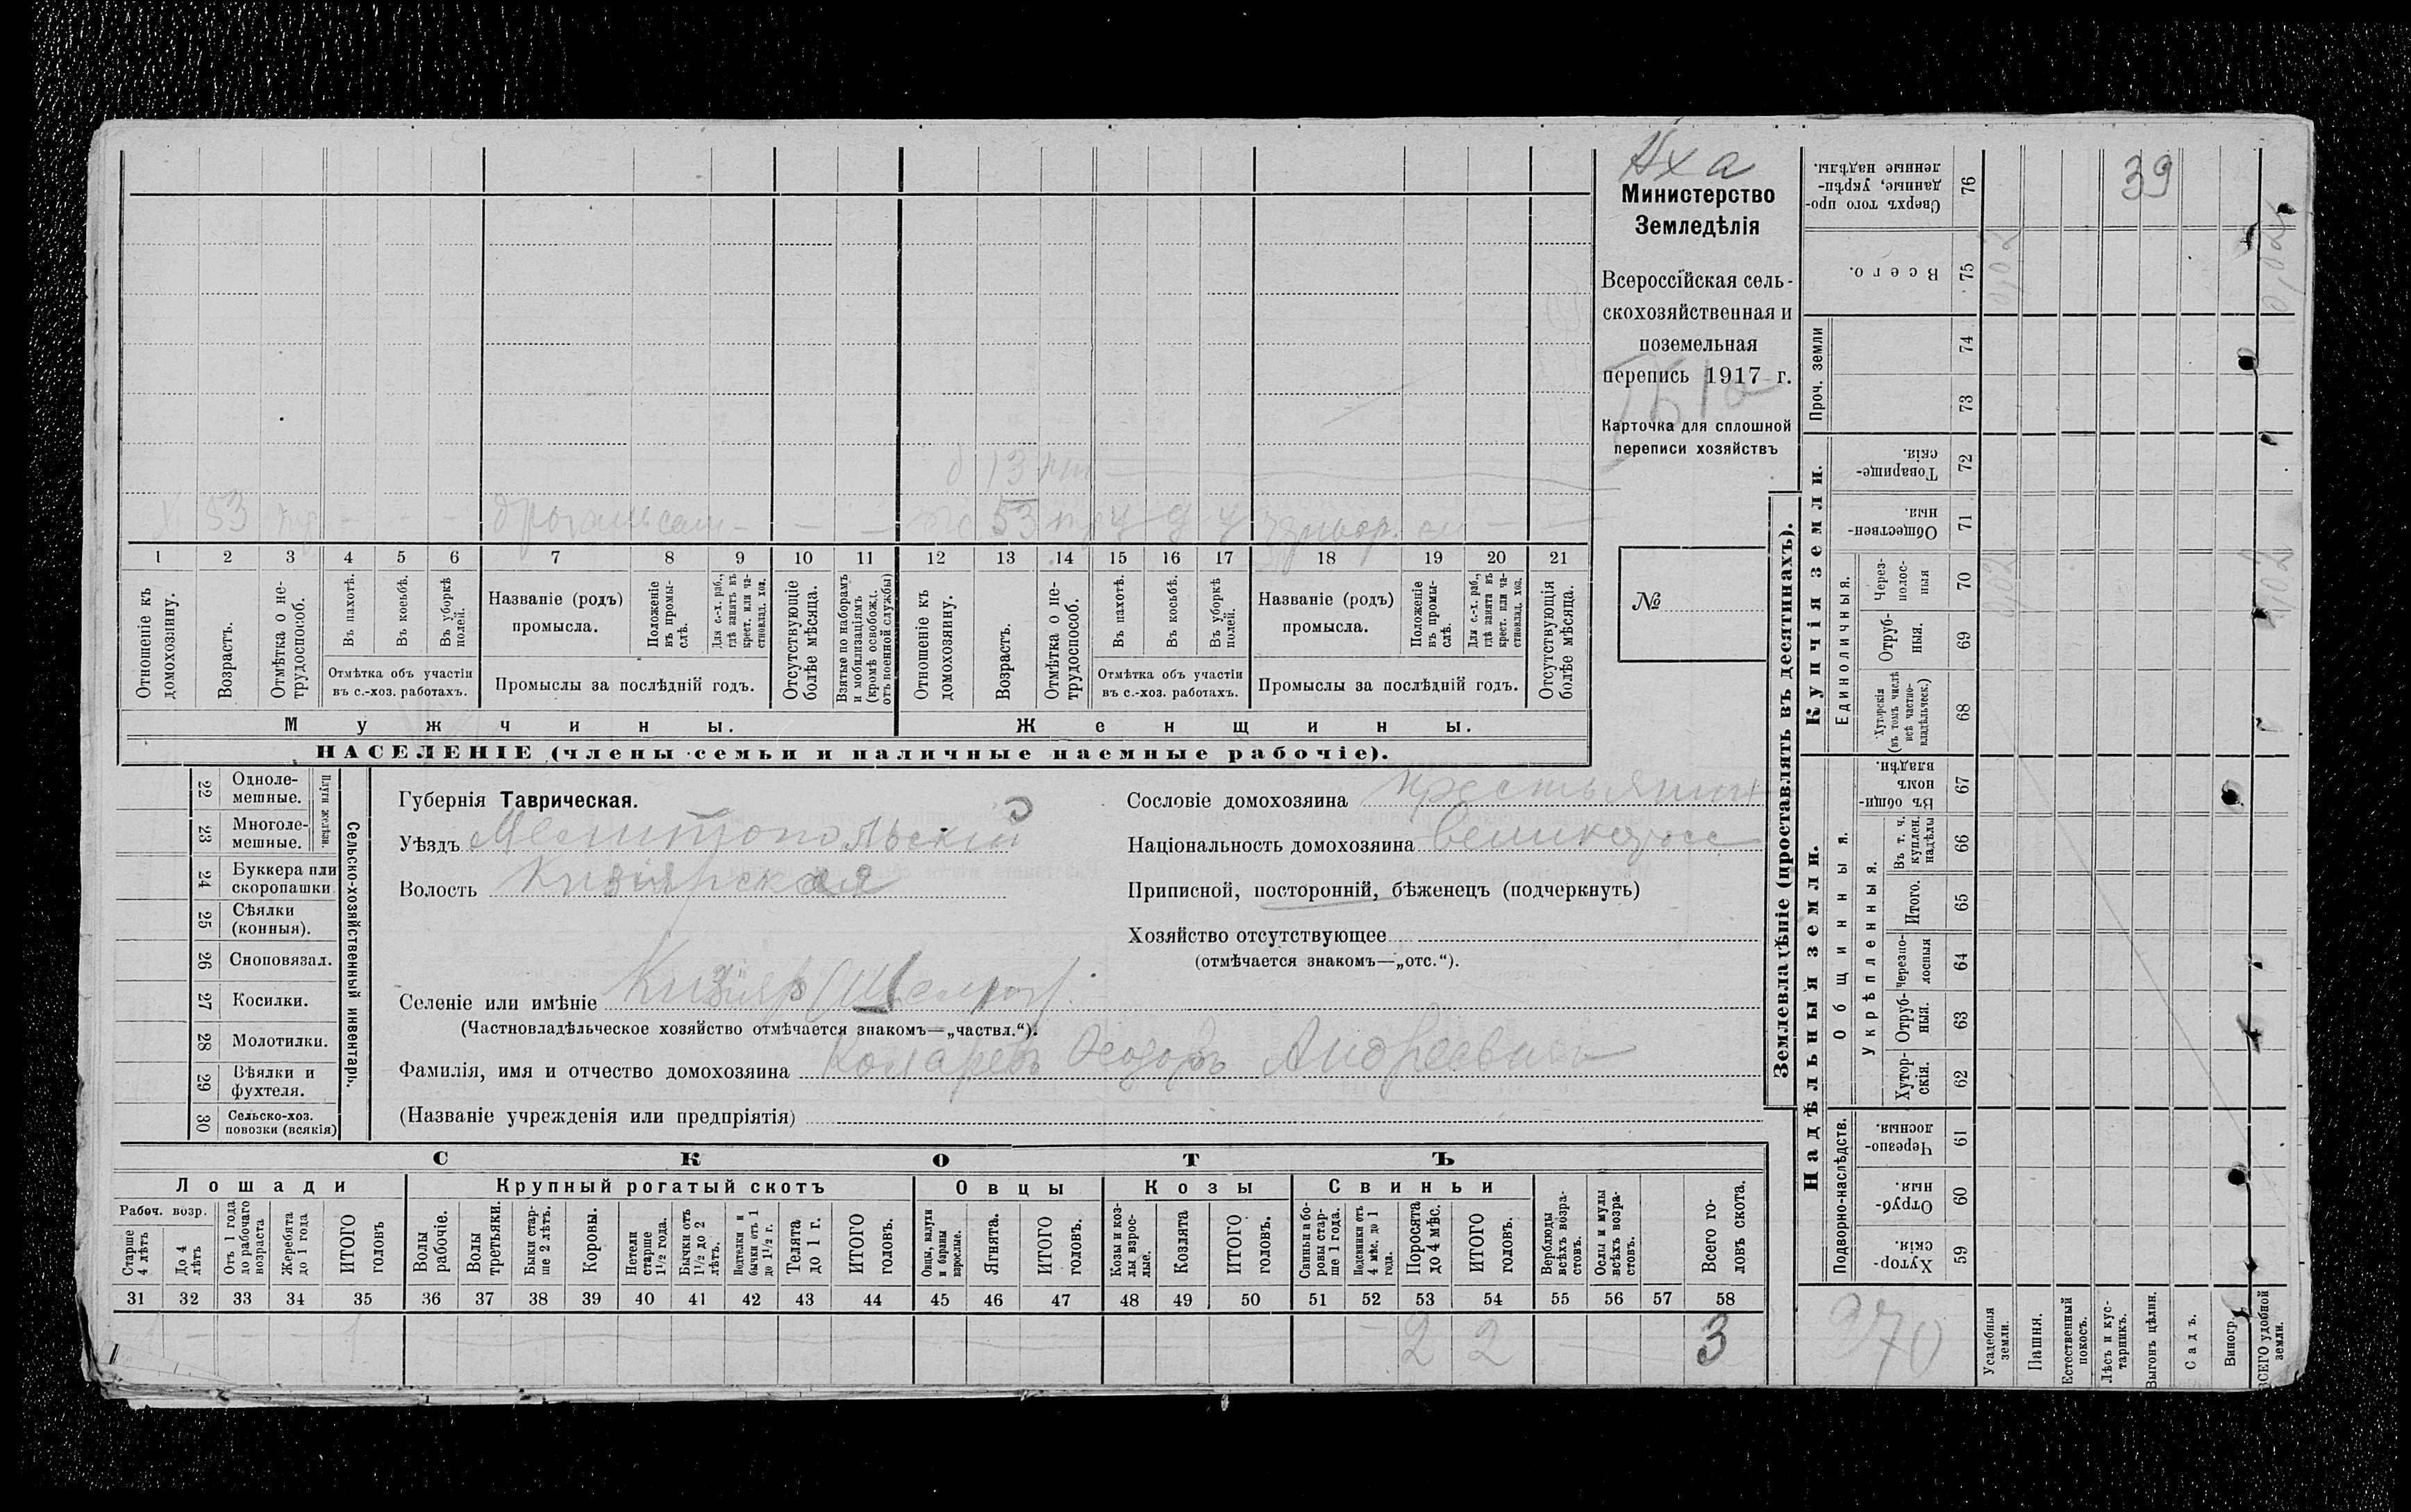 Аха
Министерство
Земледѣлія
Всероссійская сель-
скохозяйственная и
поземельная
перепись 1917 г.
Карточка для сплошной
переписи хозяйствъ
№
б 13
х 53 - - - - - - 53
1 2 3 4 5 6 7 8 9 10 11 12 13 14 15 16 17 18 19 20 21
Отношеніе къ домохозяину.
Возрастъ.
Отмѣтка о не-трудоспособ.
Въ пахотѣ.
Въ косьбѣ.
Въ уборкѣ полей.
Отмѣтка объ участіи
въ с.-хоз. работахъ.
Названіе (родъ)
промысла.
Положеніе въ промы-слѣ.
Для с.-х. раб., гдѣ занятъ въ крест. или ча-стновлад. хоз.
Промыслы за послѣдній годъ.
Отсутствующіе болѣе мѣсяца.
Взятые по наборамъ и мобилизаціямъ (кромѣ освобожд. отъ военной службы)
Отношеніе къ домохозяину.
Возрастъ.
Отмѣтка о не-трудоспособ.
Въ пахотѣ.
Въ косьбѣ.
Въ уборкѣ полей.
Отмѣтка объ участіи
въ с.-хоз. работахъ.
Названіе (родъ)
промысла.
Положеніе въ промы-слѣ.
Для с.-х. раб., гдѣ занята въ крест. или ча-стновлад. хоз.
Промыслы за послѣдній годъ.
Отсутствующія болѣе мѣсяца.
Мужчины.
Женщины.
НАСЕЛЕНІЕ (члены семьи и наличные наемные рабочіе).
22 Одноле-мешные.
23 Многоле-мешные.
Плуги желѣзн.
24 Буккера или скоропашки
25 Сѣялки (конныя).
26 Сноповязал.
27 Косилки.
28 Молотилки.
29 Вѣялки и фухтеля.
30 Сельско-хоз. повозки (всякія)
Сельско-хозяйственный инвентарь.
Губернія Таврическая.
Уѣздъ Мелитопольскій
Волость Кизіярская
Селеніе или имѣніе Кизіяр
(Частновладѣльческое хозяйство отмѣчается знакомъ—„частвл.“).
Фамилія, имя и отчество домохозяина Комаревъ Ѳеодоръ Андреевичъ
(Названіе учрежденія или предпріятія)
Сословіе домохозяина крестьянин
Національность домохозяина великоросс
Приписной, посторонній, бѣженецъ (подчеркнуть)
Хозяйство отсутствующее
(отмѣчается знакомъ—„отс.“).
СКОТЪ
Лошади
Крупный рогатый скотъ
Овцы
Козы
Свиньи
Рабоч. возр.
Старше 4 лѣтъ
До 4 лѣтъ
Отъ 1 года до рабочаго возраста
Жеребята до 1 года
ИТОГО головъ
Волы рабочіе.
Волы третьяки.
Быки стар-ше 2 лѣтъ.
Коровы.
Нетели старше 1½ года.
Бычки отъ 1½ до 2 лѣтъ.
Подтелки и бычки отъ 1 до 1½ г.
Телята до 1 г.
ИТОГО головъ.
Овцы, валухи и бараны взрослые.
Ягнята.
ИТОГО головъ.
Козы и коз-лы взрос-лые.
Козлята
ИТОГО головъ.
Свиньи и бо-ровы стар-ше 1 года.
Подсвинки отъ 4 мѣс. до 1 года.
Поросята до 4 мѣс.
ИТОГО головъ.
Верблюды всѣхъ возра-стовъ.
Ослы и мулы всѣхъ возра-стовъ.
Всего го-ловъ скота.
31 32 33 34 35 36 37 38 39 40 41 42 43 44 45 46 47 48 49 50 51 52 53 54 55 56 57 58
1 - - - 1 2 2 3
Землевладѣніе (проставлять въ десятинахъ).
Купчія земли.
Надѣльныя земли.
Сверхъ того про-данные, укрѣп-ленные надѣлы. 76
39
Всего. 75
0,02
0,02
Проч. земли
74
73
Товарище-скія. 72
Обществен-ныя. 71
Единоличныя.
Через-полос-ныя 70
Отруб-ныя. 69
Хуторскія (въ томъ числѣ всѣ частно-владѣльческ.) 68
Общинныя.
Въ общи-номъ владѣн. 67
Укрѣпленныя.
Въ т. ч. куплен. надѣлы 66
Итого. 65
Черезпо-лосныя 64
Отруб-ныя. 63
Хутор-скія. 62
Подворно-наслѣдств.
Черезпо-лосныя. 61
Отруб-ныя. 60
Хутор-скія. 59
270
Усадебныя земли.
Пашня.
Естественный покосъ.
Лѣсъ и кус-тарникъ.
Выгонъ цѣлин.
Садъ.
Виногр.
ВСЕГО удобной земли.